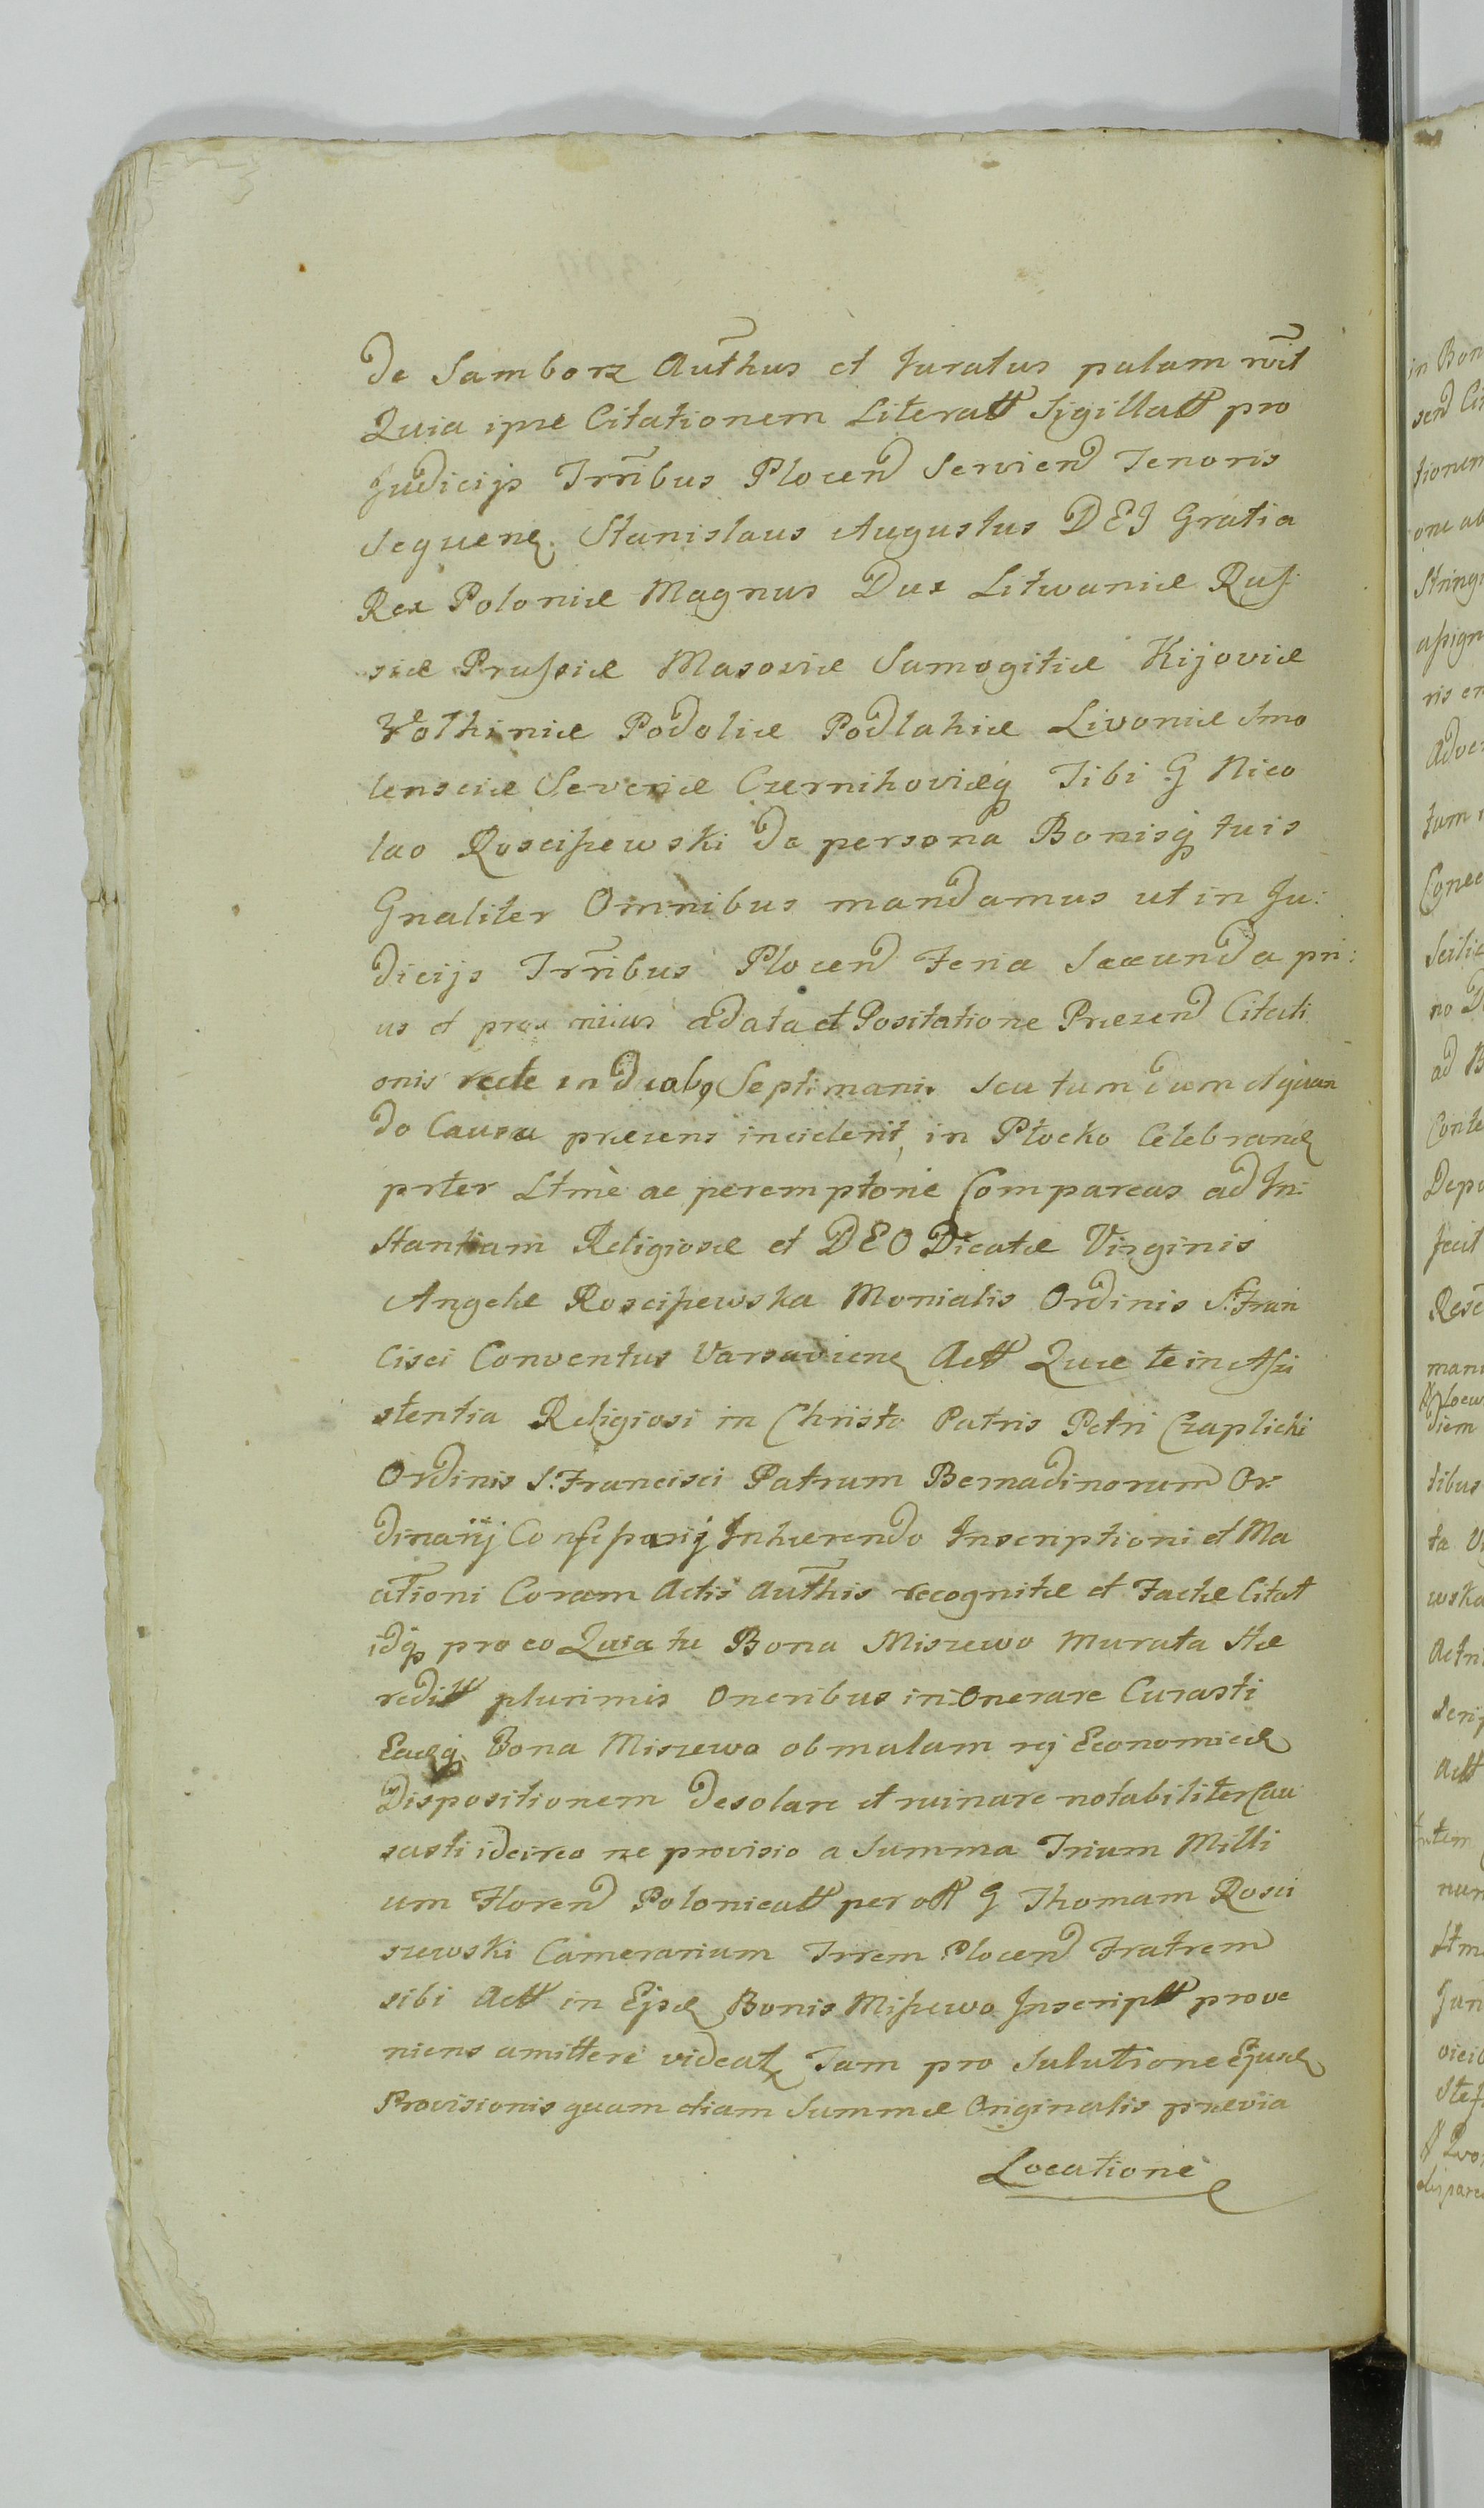 de Samborz Authus et Juratus palam roit
Quia ipse Citationem Literatt Sigillatt pro
Judicijs Trribus Plocen Servien Tenoris
Sequene. Stanislaus Augustus DEJ Gratia
Rex Poloniæ Magnus Dux Litwaniæ Rus
siæ Prussiæ Masoviæ Samogitiæ Kijoviæ
Volhiniæ Podoliæ Podlahiæ Livoniæ Smo
lensciæ Severiæ Czernihoviæq Tibi G Nico
lao Rosciszewski de persona Bonisq tuis
Gnaliter Omnibus mandamus ut in Ju:
dicijs Trribus Plocen Feria Secunda pri:
us et proximius adata et Positatione Præsen Citati
onis recte in duabq Septimanis seu tum dum et quan
do Causa præsens inciderit, in Płocko Celebrand
prter Ltmè ac peremptorie Compareas ad In:
stantiam Religiosæ et DEO Dicatæ Virginis
Angelæ Rosciszewska Monialis Ordinis S. Fran
cisci Conventus Varsaviene Actt Quæ te in Assi
stentia Religiosi in Christo Patris Petri Czaplicki
Ordinis S. Francisci Patrum Bernadinorum Or:
dinarij Confessarij Inhærendo Inscriptioni et Ma
ationi Coram Actis Authis recognitæ et Factæ Citat
idq pro eo Quia tu Bona Miszewo Murata Hæ
reditt plurimis Oneribus in Onerare Curasti
Eaeq Bona Miszewo ob malam rej Economicæ
Dispositionem desolare et ruinare notabiliter Cau
sasti idcirco ne provisio a Summa Trium Milli
um Floren Polonicatt per ott G Thomam Rosci
szewski Camerarium Trrem Plocen Fratrem
sibi Actt in Ejsd Bonis Miszewo Inscriptt prove
niens amittere videat Tam pro Salutione Ejusd
Provisionis quam etiam Summæ Originalis prævia
Locatione